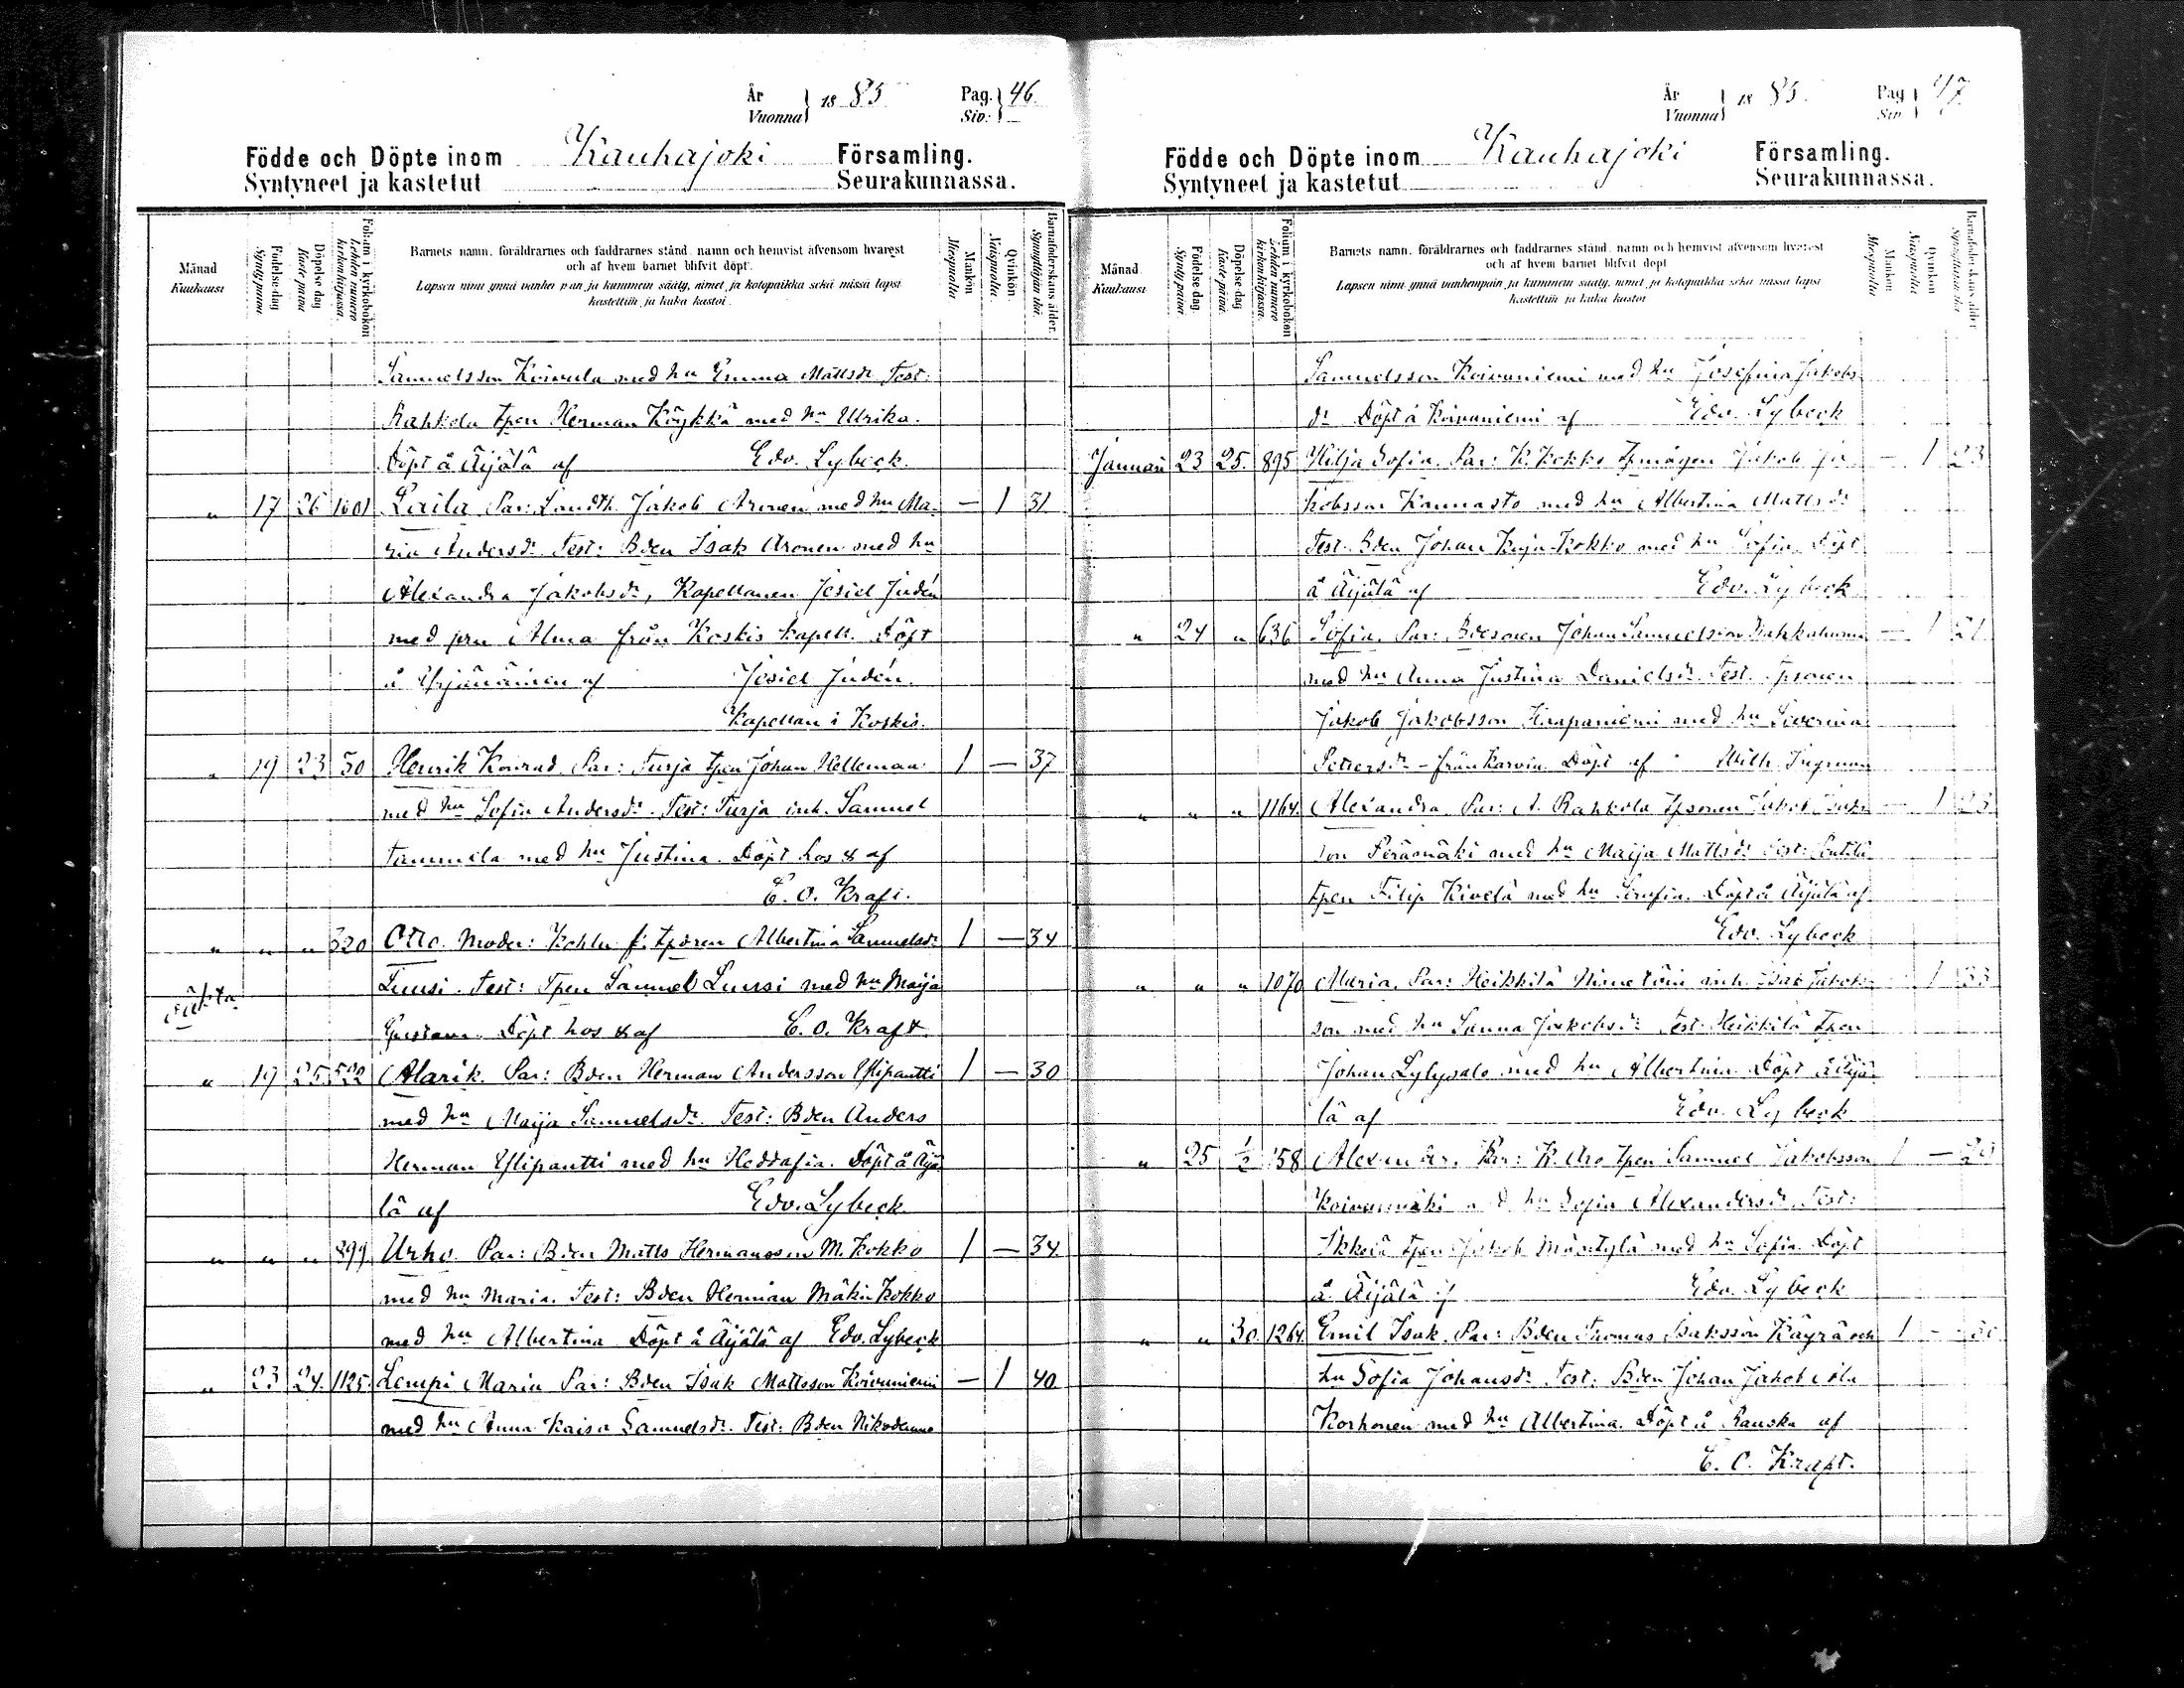 År
Vuonna } 1885 Pag. Siv: } 46.
Födde och Döpte inom Kauhajoki Församling.
Syntyneet ja kastetut Seurakunnassa.
Månad Kuukausi
Födelse dag Syntypäivä
Döpelse dag Kaste päivä
Folium i kyrkoboken Lehden numero kirkonkirjassa.
Barnets namn, föräldrarnes och faddrarnes stånd, namn och hemvist äfvensom hvarest
och af hvem barnet blifvit döpt.
Lapsen nimi ynnä vanhempain ja kummein sääty, nimet ja kotopaikka sekä missä lapsi
kastettiin ja kuka kastoi.
Mankön Miespuolta
Qvinkön Naispuolta.
Barnaföderskans ålder. Synnyttäjän ikä.
Samuelsson Koivula med hu Emma Mattsdr Test:
Rahkola tpen Herman Köykkä med hu Ulrika.
Döpt å Äijälä af Edv. Lybeck.
" 17 26 1601 Laila. Par: Landth. Jakob Aronen med hu Ma- — 1 31
ria Andersdr. Test: Bden Isak Aronen med hu
Alexandra Jakobsdr, Kapellanen Jesiel Judén
med fru Alma från Koskis kapell. Döpt
å af Jesiel Judén.
Kapellan i Koskis.
" 19 23 50 Henrik Konrad. Par: Turja tpen Johan Helleman 1 — 37
med hu Sofia Andersdr. Test: Turja inh. Samuel
Tammela med hu Justina. Döpt hos & af
C. O. Kraft.
" " " 320 Otto. Moder: Albertina Samuelsdr 1 — 34
Luusi. Test: Tpen Samuel Luusi med hu Maija
oäkta
Gustava. Döpt hos & af C. O. Kraft
" 19 25 522 Alarik. Par: Bden Herman Andersson Ylipantti 1 — 30
med hu Maija Samuelsdr. Test: Bden Anders
Herman Ylipantti med hu Heddafia. Döpt å Äijä
lä af Edv. Lybeck.
" " " 899 Urho. Par: Bden Matts Hermansson M. Kokko 1 — 34
med hu Maria. Test: Bden Herman Mäki Kokko
med hu Albertina Döpt å Äijälä af Edv. Lybeck
" 23 24. 1125. Lempi Maria Par: Bden Isak Mattsson Koivuniemi — 1 40
med hu Anna Kaisa Samuelsdr. Test: Bden Nikodemus
År
Vuonna } 1885. Pag Siv } 47.
Födde och Döpte inom Kauhajoki Församling.
Syntyneet ja kastetut Seurakunnassa.
Månad Kuukausi
Födelse dag. Syntypäivä.
Döpelse dag Kaste päivä.
Folium i kyrkoboken Lehden numero kirkonkirjassa.
Barnets namn, föräldrarnes och faddrarnes stånd, namn och hemvist äfvensom hvarest
och af hvem barnet blifvit döpt
Lapsen nimi ynnä vanhempain ja kummein sääty, nimet ja kotopaikka sekä missä lapsi
kastettiin ja kuka kastoi
Mankön Miespuolta
Qvinkön Naispuolta
Barnaföderskans ålder Synnyttäjän ikä
Samuelsson Koivuniemi med hu Josefina Jakobs
dr Döpt å Koivuniemi af Edv. Lybeck
Januari 23 25. 895 Hilja Sofia. Par: K. Kokko tpmågen Jakob Ja — 1 23
kobsson Kannasto med hu Albertina Mattsdr
Test. Bden Johan Kuja-Kokko med hu Sofia. Döpt
å Äijälä af Edv. Lybeck
" 24 " 636 Sofia. Par: Bdesonen Johan Samuelsson — 1 21
med hu Anna Justina Danielsdr. Test. tpsonen
Jakob Jakobsson Haapaniemi med hu Severina
Pettersdr - från Karvia Döpt af Wilh. Ingman
" " " 1164. Alexandra. Par: A. Rahkola tpsonen Jakob — 1 23
son Perämäki med hu Maija Mattsdr Test:
tpen Filip Kivelä med hu Serafia. Döpt å Äijälä af
Edv. Lybeck
" " " 1070 Maria. Par: Heikkilä inh. Isak Jakobs — 1 33
son med hu Sanna Jakobsdr Test: Heikkilä tpen
Johan Lylysalo med hu Albertina Döpt å Äijä-
lä af Edv. Lybeck
" 25 1/2 158 Alexander. Par: K. Aro tpen Samuel Jakobsson 1 —
Koivumäki med hu Sofia Alexandersdr. Test:
Ikkelä tpen Jakob Mäntylä med hu Sofia. Döpt
å Äijälä af Edv. Lybeck
" " 30. 1264. Emil Isak. Par: Bden Thomas Isaksson Käyrä och 1 —
hu Sofia Johansdr Test. Bden Johan Jakob
Korhonen med hu Albertina. Döpt å Ranska af
C. O. Kraft.